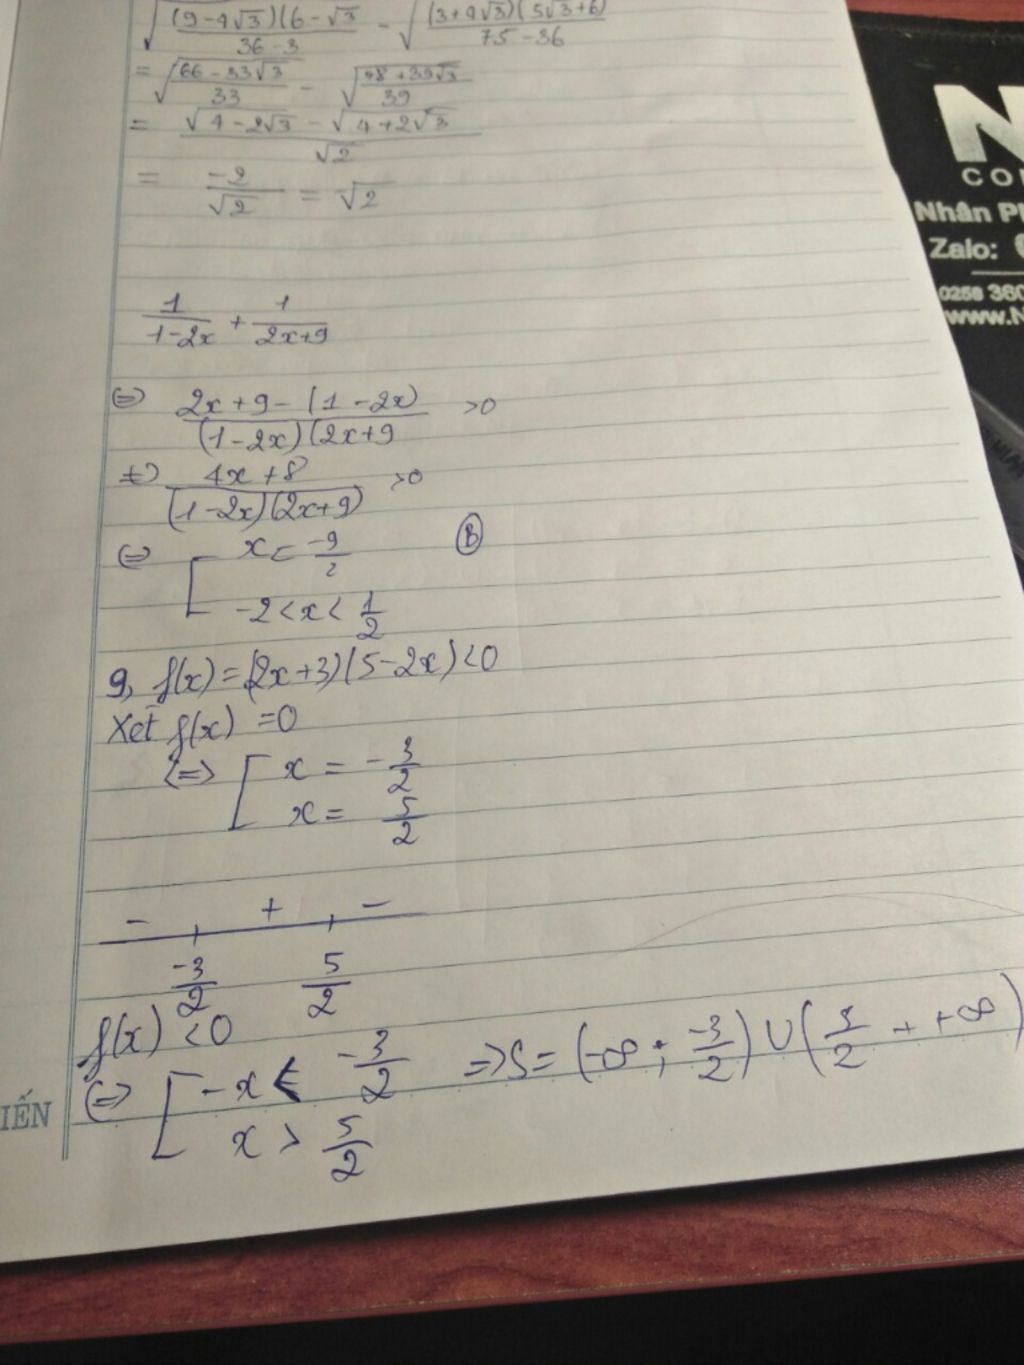 √((9-4√3)(6-√3)/(36-3)) - √((3+4√3)(5√3+6)/(75-36))
= √((66-33√3)/33) - √((78+39√3)/39)
= (√(4-2√3) - √(4+2√3))/√2
= -2/√2 = √2
1/(1-2x) + 1/(2x+9)
⇔ (2x+9-(1-2x))/((1-2x)(2x+9) >0
⇔ (4x+8)/((1-2x)(2x+9)) >0
⇔ [ x < -9/2 Ⓑ
-2<x<1/2
9, f(x)=(2x+3)(5-2x)<0
Xét f(x) =0
⇔ [ x = -3/2
x = 5/2
- + -
-3/2 5/2
f(x) <0
⇔ [ -x < -3/2 ⇒S= (-∞; -3/2) ∪ (5/2 + +∞)
x > 5/2
IẾN
N
CO
Nhân P
Zalo:
0258 360
www.N